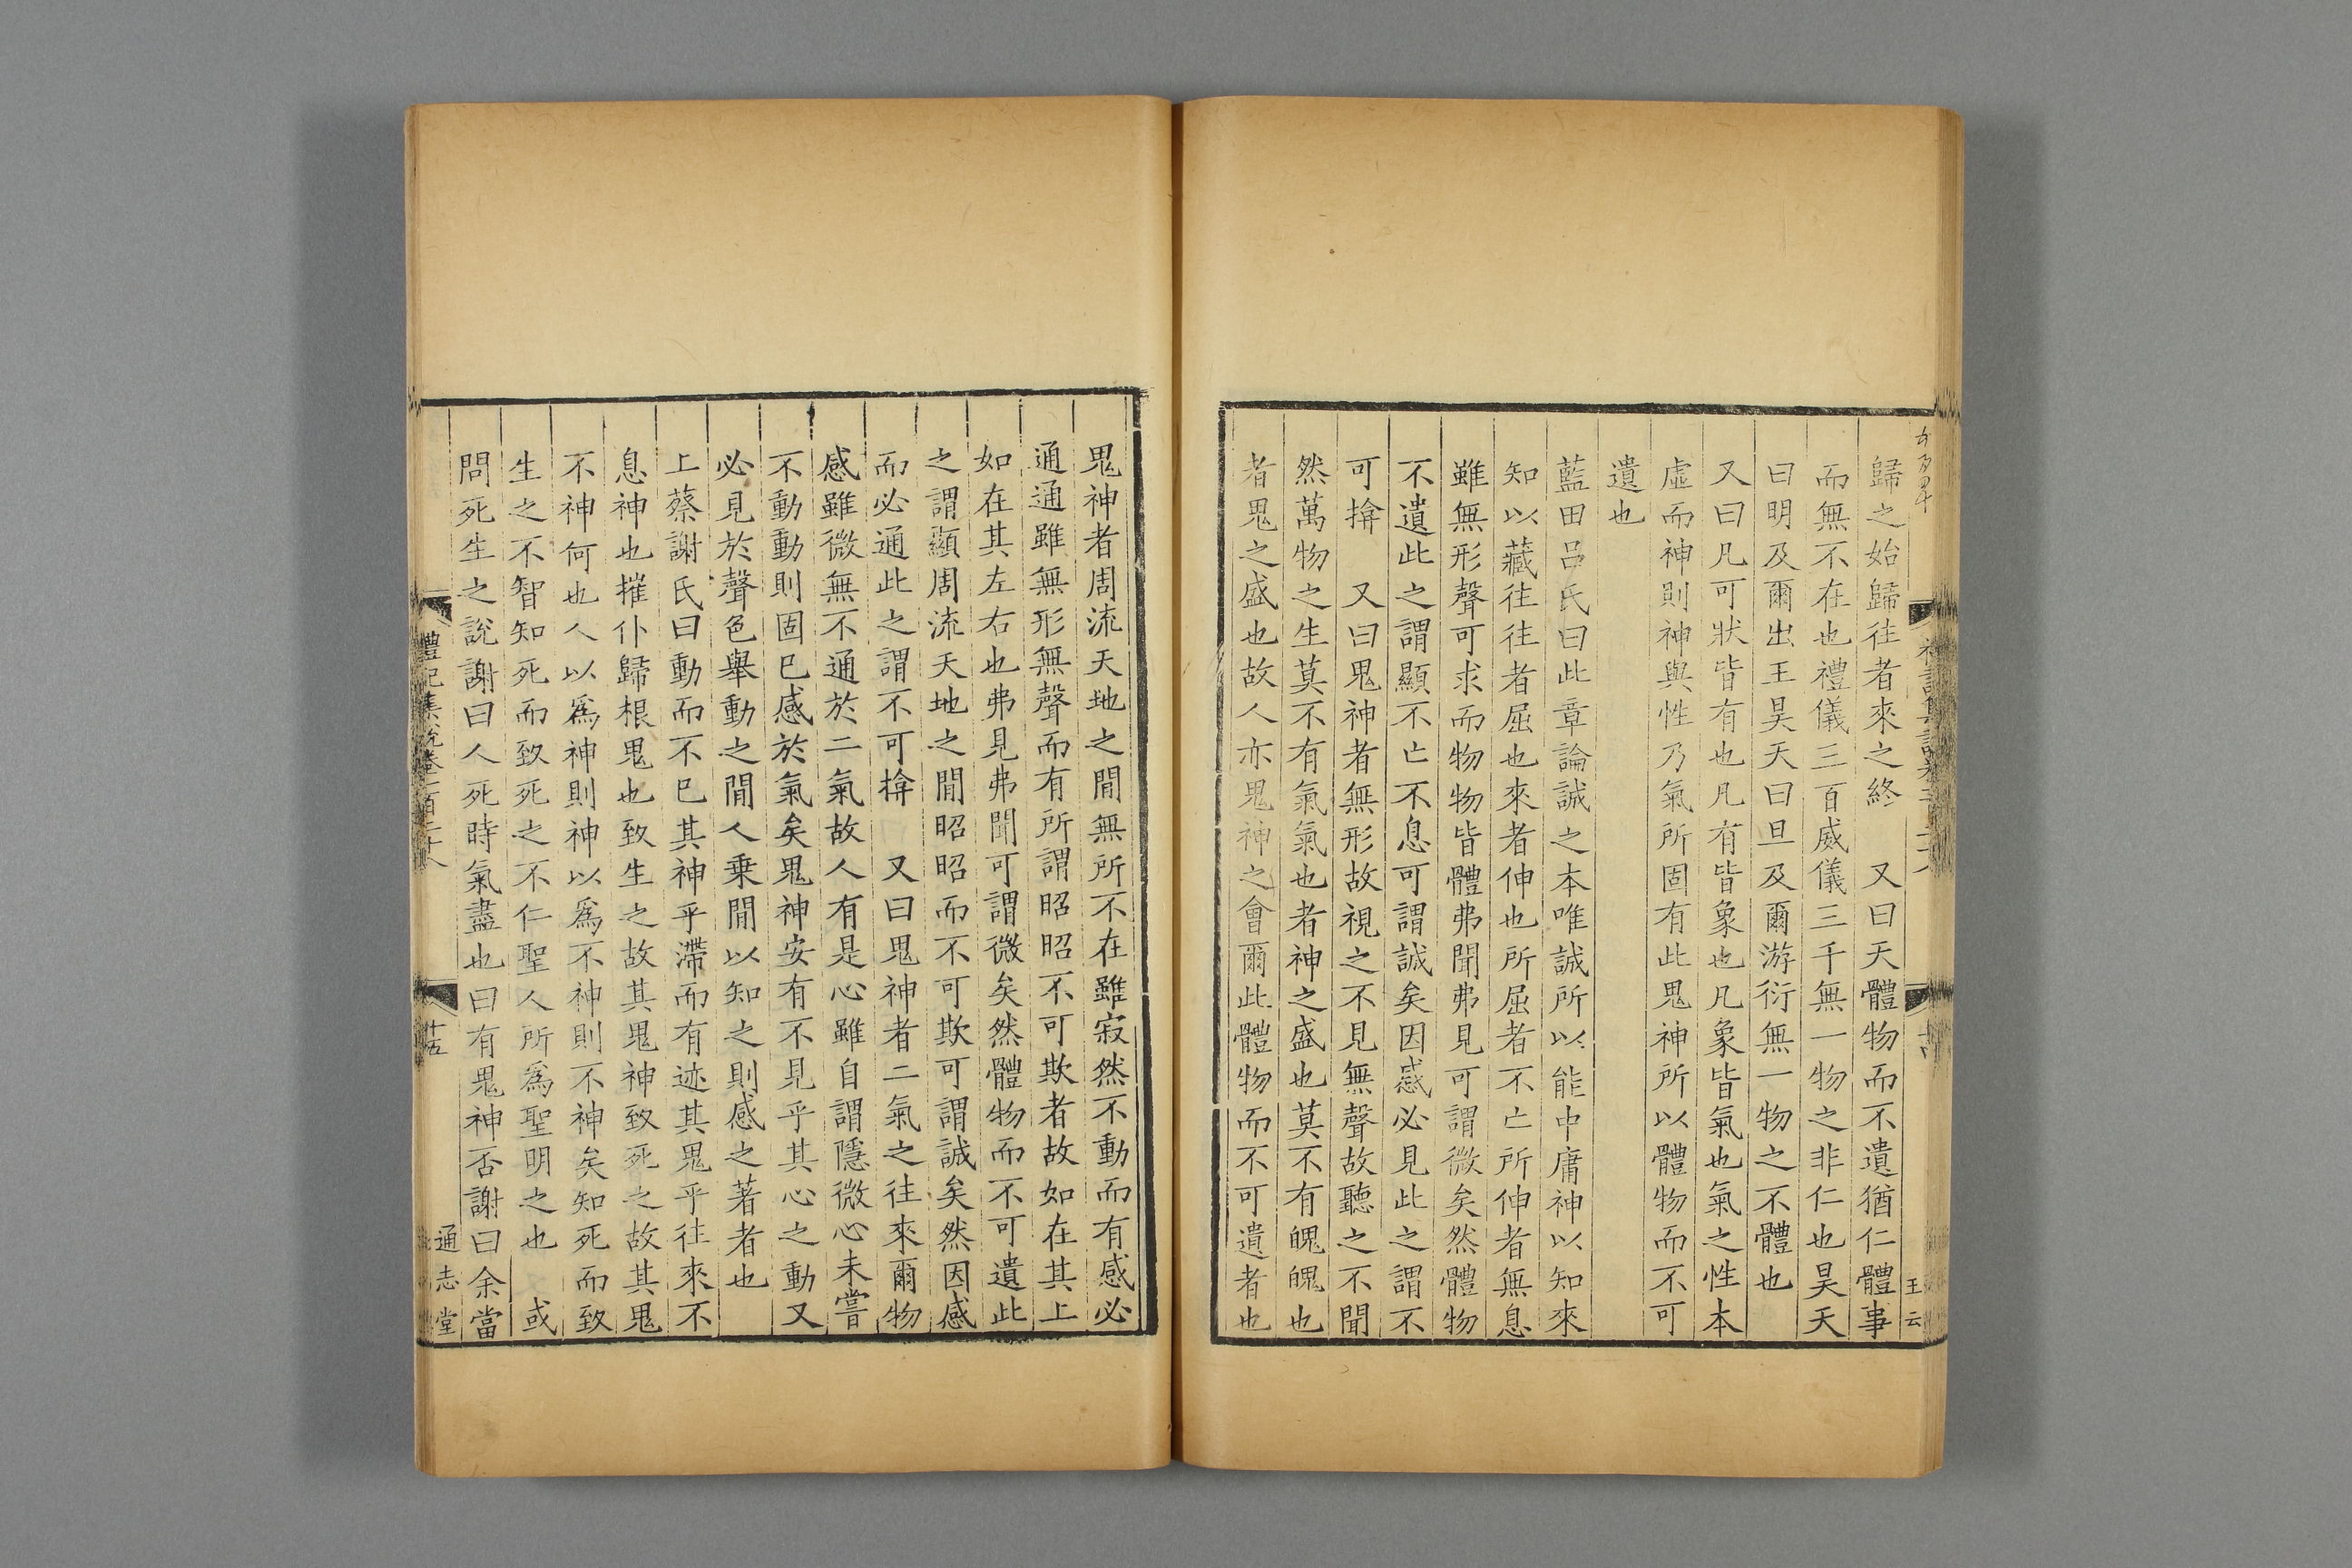 歸之始歸往者來之終　又曰天體物而不遺猶仁體事
而無不在也禮儀三百威儀三千無一物之非仁也昊天
曰明及爾出王昊天曰旦及爾游衍無一物之不體也
又曰凡可狀皆有也凡有皆象也凡象皆氣也氣之性本
虛而神則神與性乃氣所固有此鬼神所以體物而不可
遺也
藍田呂氏曰此章論誠之本唯誠所以能中庸神以知來
知以藏往往者屈也來者伸也所屈者不亡所伸者無息
雖無形聲可求而物物皆體弗聞弗見可謂微矣然體物
不遺此之謂顯不亡不息可謂誠矣因感必見此之謂不
可揜　又曰鬼神者無形故視之不見無聲故聽之不聞
然萬物之生莫不有氣氣也者神之盛也莫不有魄魄也
者鬼之盛也故人亦鬼神之會爾此體物而不可遺者也
王云
鬼神者周流天地之閒無所不在雖寂然不動而有感必
通通雖無形無聲而有所謂昭昭不可欺者故如在其上
如在其左右也弗見弗聞可謂微矣然體物而不可遺此
之謂顯周流天地之閒昭昭而不可欺可謂誠矣然因感
而必通此之謂不可揜　又曰鬼神者二氣之往來爾物
感雖微無不通於二氣故人有是心雖自謂隱微心未嘗
不動動則固已感於氣矣鬼神安有不見乎其心之動又
必見於聲色舉動之閒人乗閒以知之則感之著者也
上蔡謝氏曰動而不已其神乎滯而有迹其鬼乎往來不
息神也摧仆歸根鬼也致生之故其鬼神致死之故其鬼
不神何也人以爲神則神以爲不神則不神矣知死而致
生之不智知死而致死之不仁聖人所爲聖明之也　或
問死生之說謝曰人死時氣盡也曰有鬼神否謝曰余當
禮記集說卷一百二十八
十五
通志堂